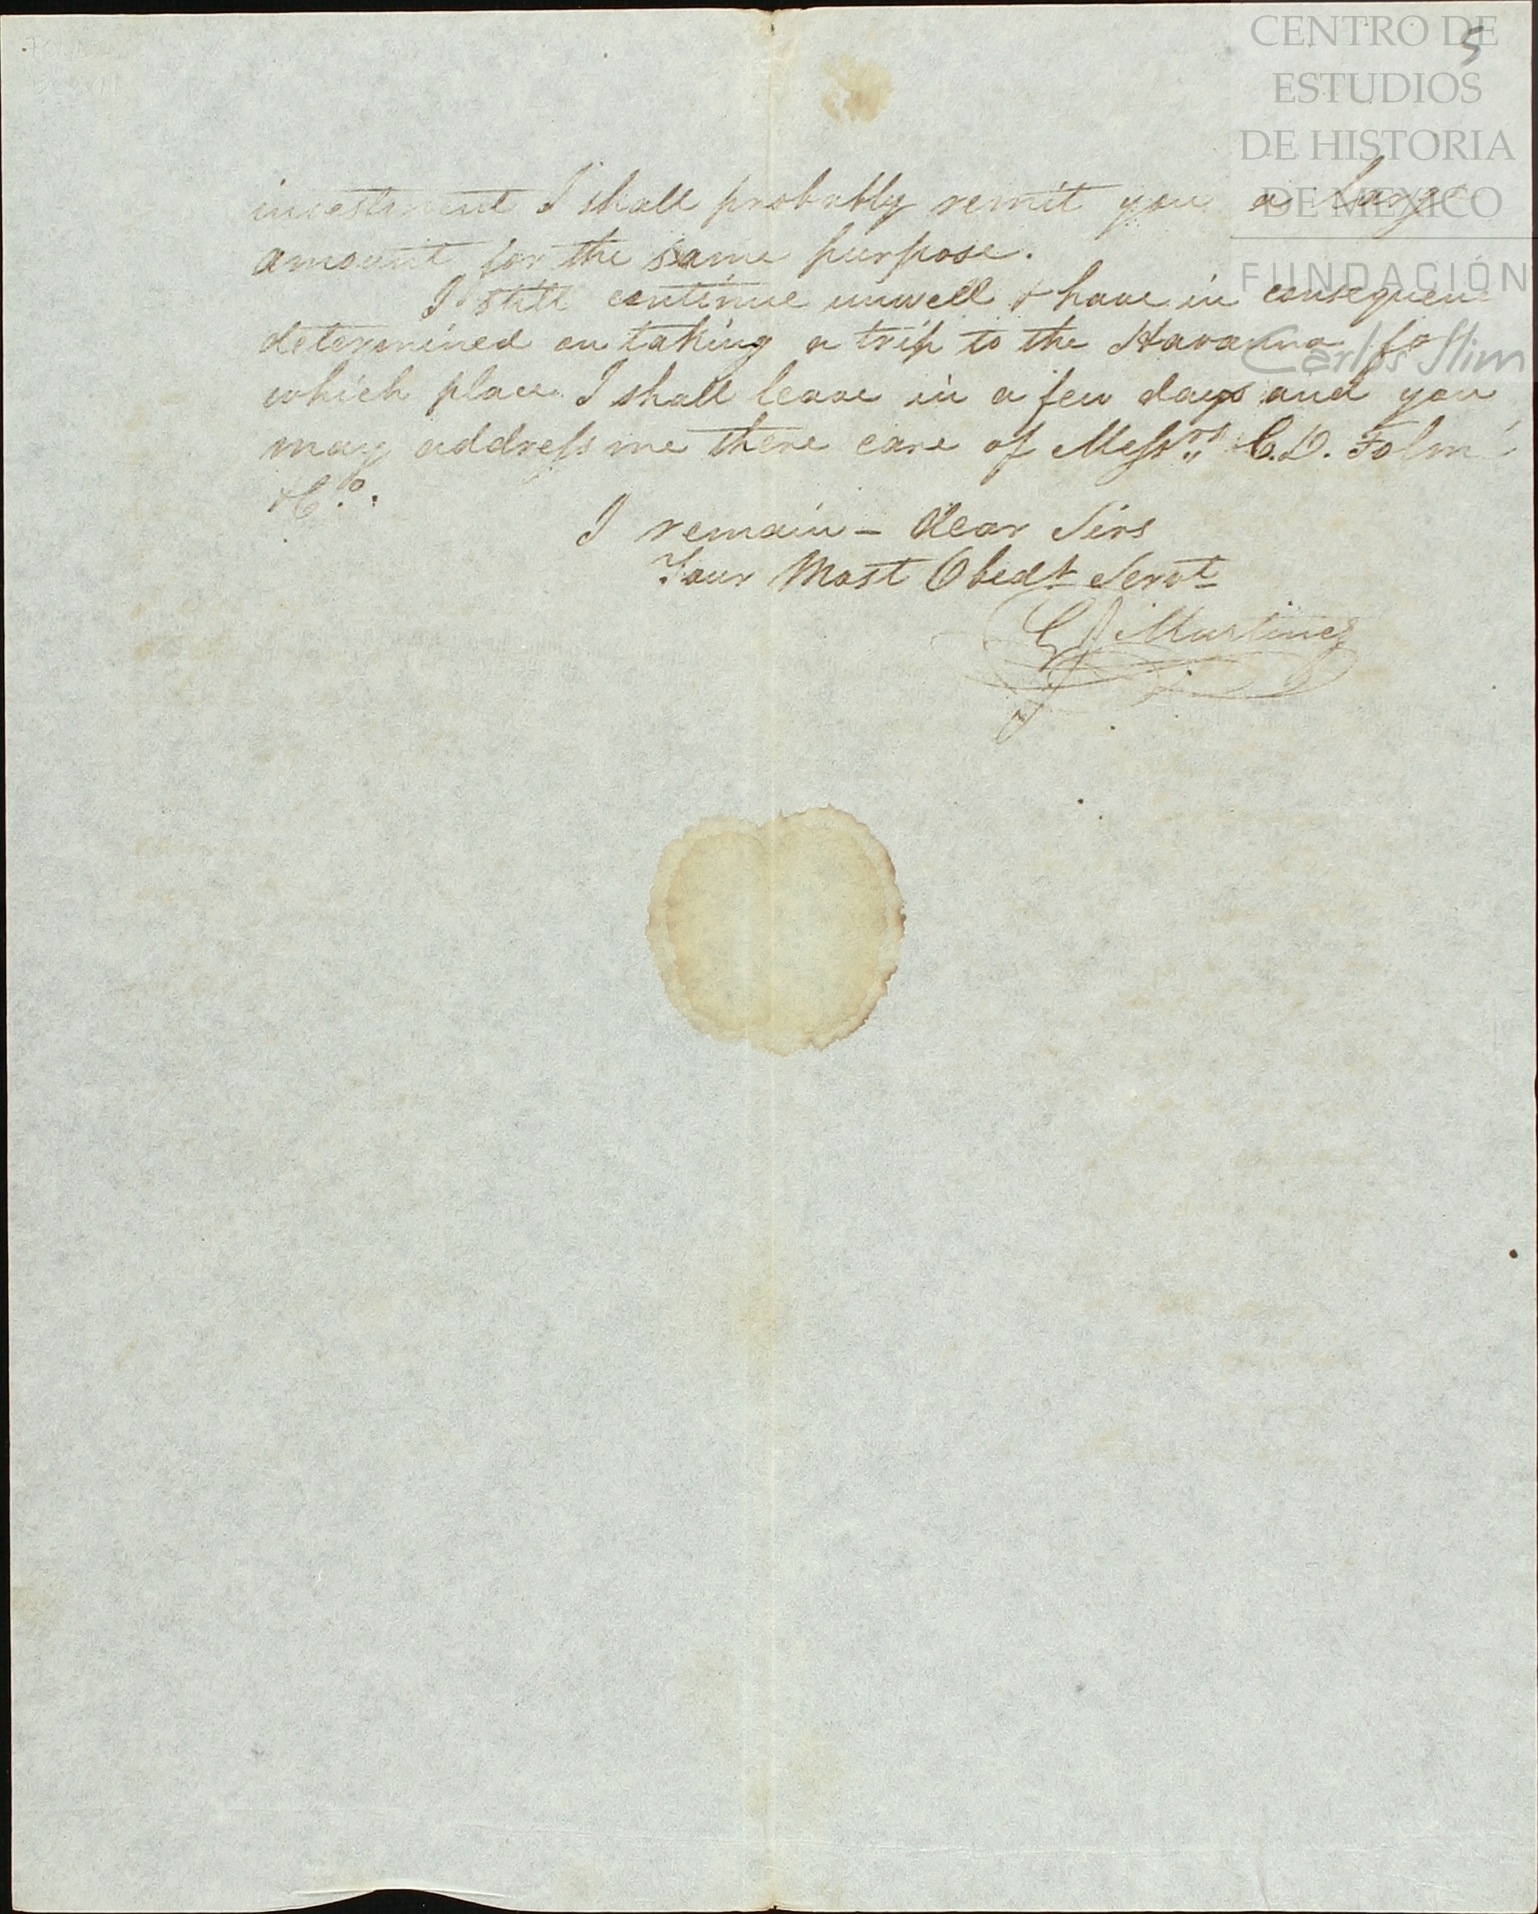 CENTRO DE
ESTUDIOS
DE HISTORIA
DE MEXICO
FUNDACIÓN
Carlos Slim
5
investment I shall probably remit you a large
amount for the same purpose.
I still continue unwell & have in consequenc
determined on taking a trip to the Havanna fo
which place I shall leave in a few days and you
may address me there care of Messrs C.D. Tolmé
& Co.
I remain – dear Sirs
Your Most Obedt Servt
Martinez